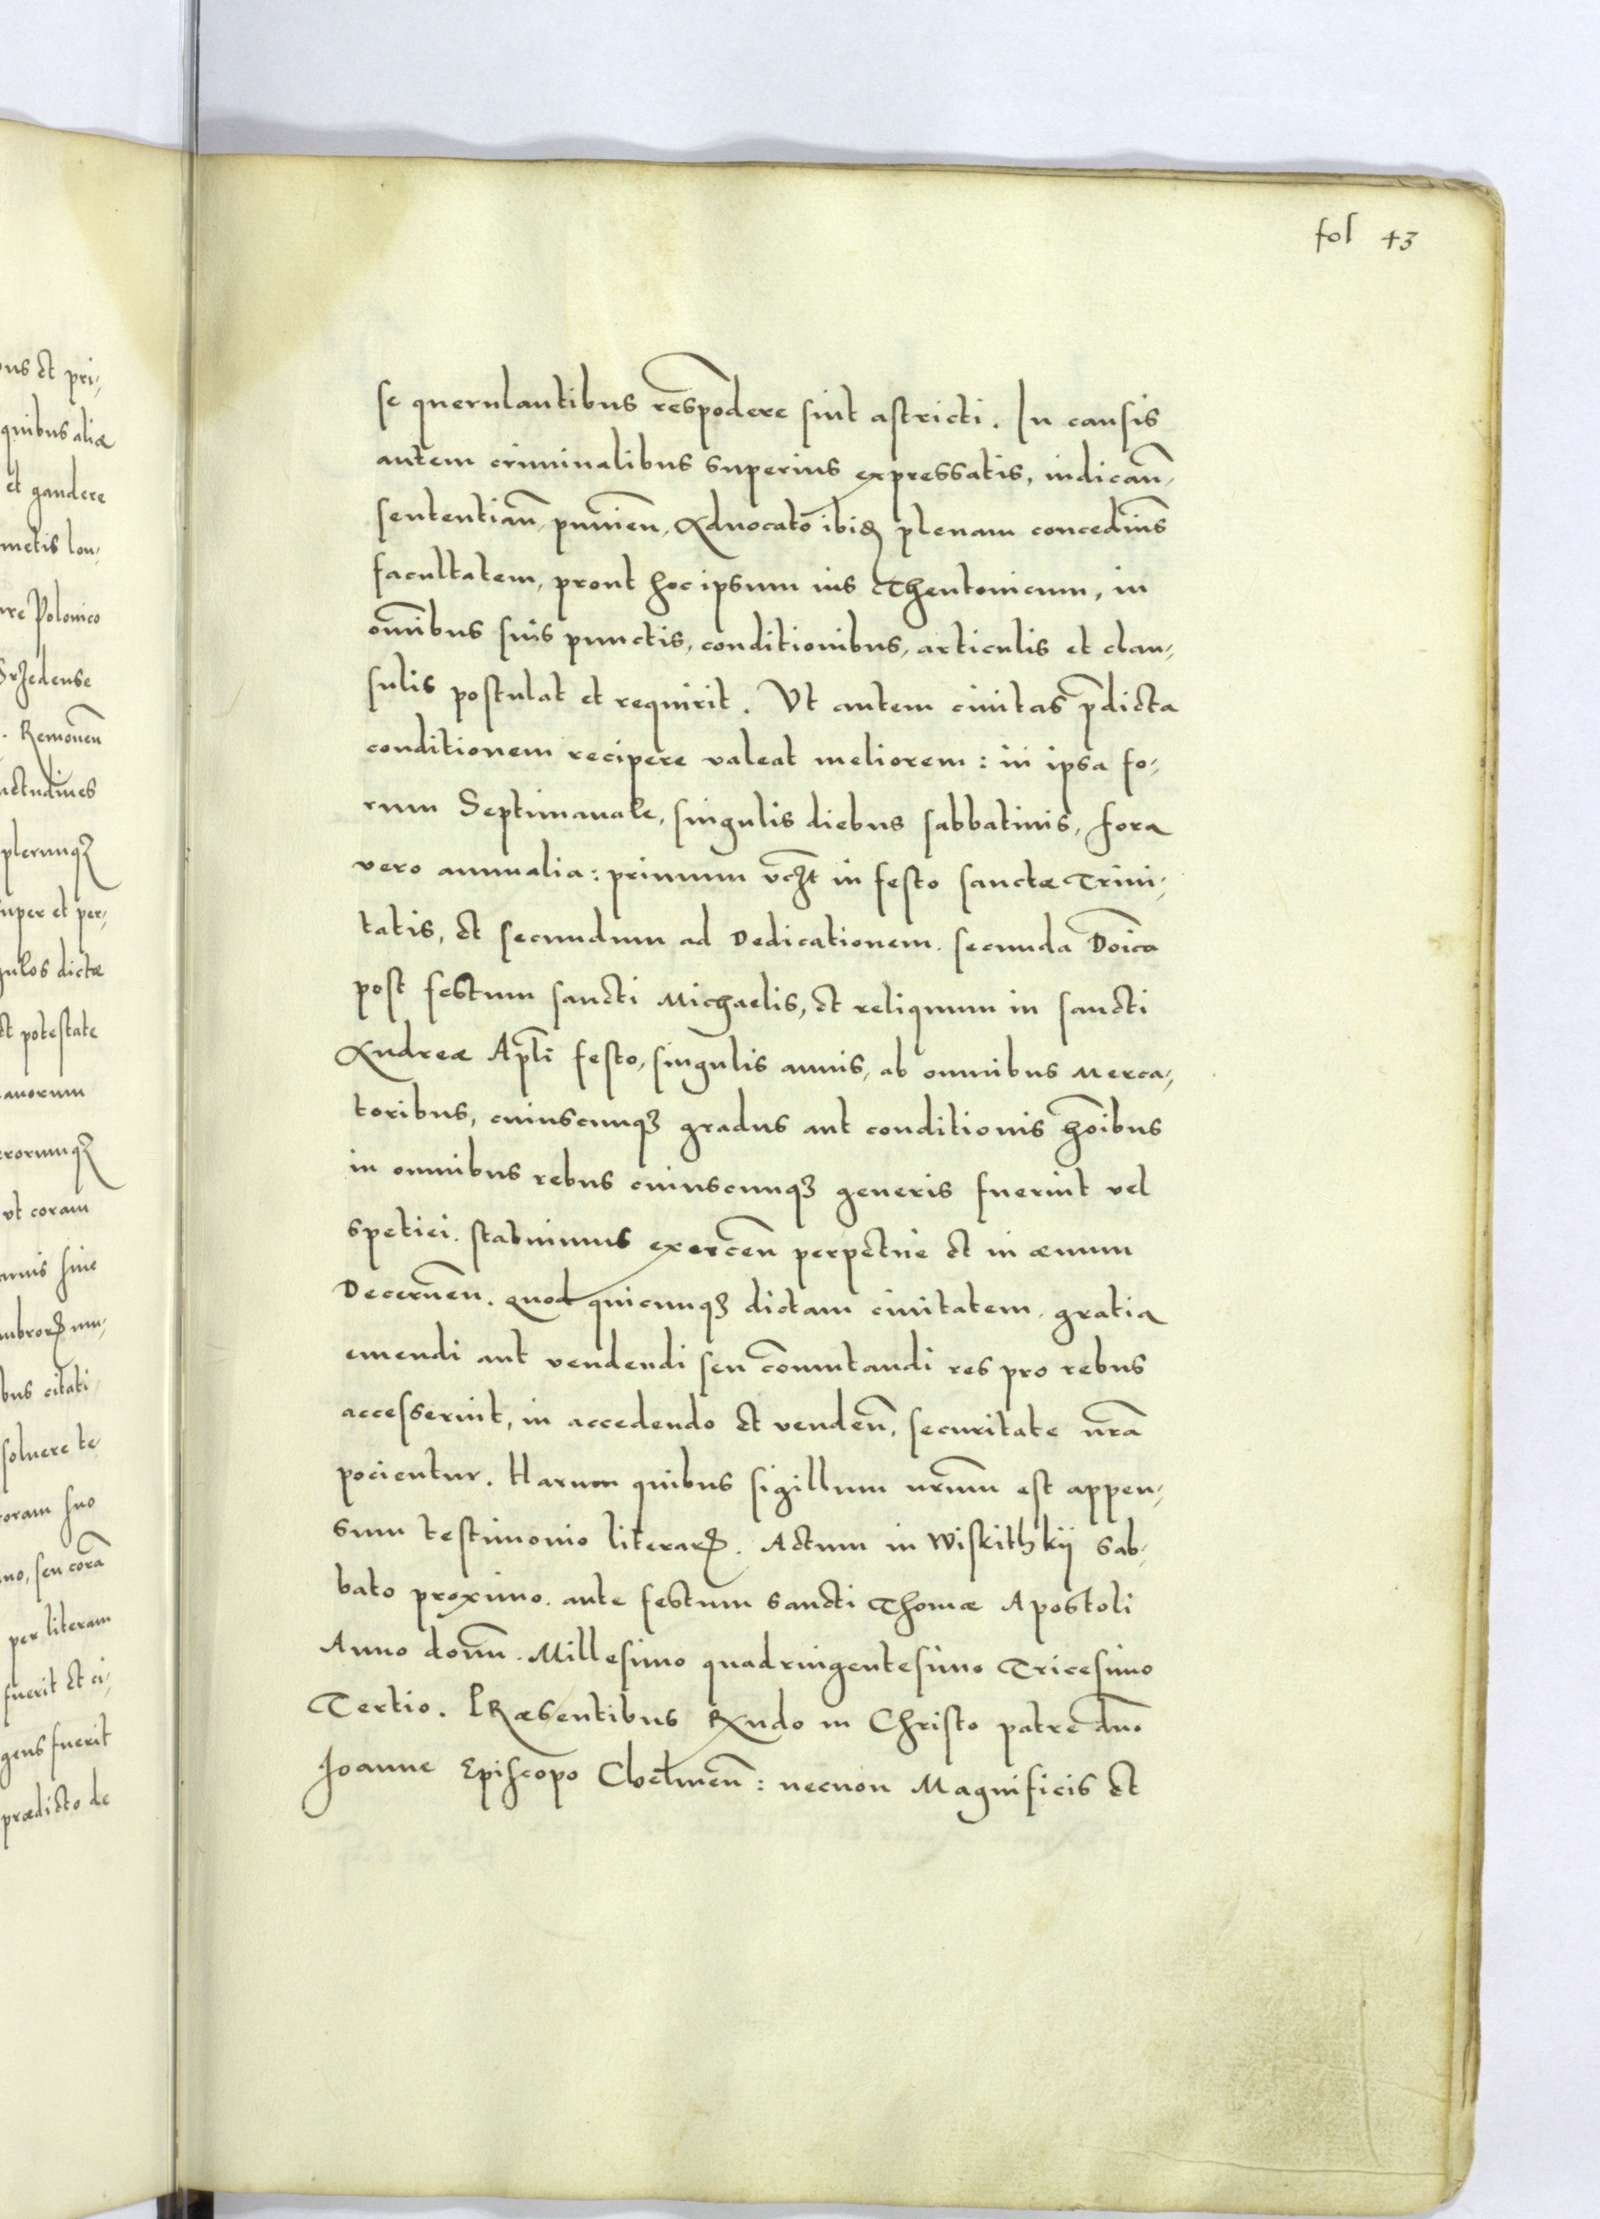 fol 43
se querulantibus respōdere sint astricti. In causis
autem criminalibus superius expressatis, iudicañ,
sententiañ, punień, Aduocato ibiđ plenam concedim9
facultatem, prout hoc ipsum ius Theutonicum, in
om̄ibus suis punctis, conditionibus, articulis et clau-
sulis postulat et requirit. Vt autem ciuitas p̄dicta
conditionem recipere valeat meliorem: in ipsa fo-
rum Septimanale, singulis diebus sabbatinis, fora
vero annualia: primum vcȝt in festo sanctæ Trini-
tatis, et secundum ad Dedicationem. secunda Dōica
post festum sancti Michaelis, et reliquum in sancti
Andreæ Apl̄i festo, singulis annis, ab omnibus Merca-
toribus, cuiuscunqȝ gradus aut conditionis hōibus
in omnibus rebus cuiuscunqȝ generis fuerint vel
spetiei. statuimus exerceñ perpetue et in æuum
Decerneñ. quod quicunqȝ dictam ciuitatem. gratia
emendi aut vendendi seu com̄utandi res pro rebus
accesserint, in accedendo et vendeñ, securitate nr̄a
pocientur. Harum quibus sigillum nr̄um est appen-
sum testimonio literarꝝ. Actum in Wiskithkij sab-
bato proximo. ante festum sancti Thomæ Apostoli
Anno domñ. Millesimo quadringentesimo Tricesimo
Tertio. PRæsentibus Rx̄ndo in Christo patre dn̄o
Joanne Episcopo Chelmeñ: necnon Magnificis et
ous et pri-
quibus aliæ
et gaudere
metis lon-
ure Polonico
Srzedense
. Remoueñ
plerunqȝ
super et per-
gulos dictæ
et potestate
vt coram
bus citati
soluere te-
coram suo
no, seu corā
per literam
fuerit et ci-
gens fuerit
prædicto de